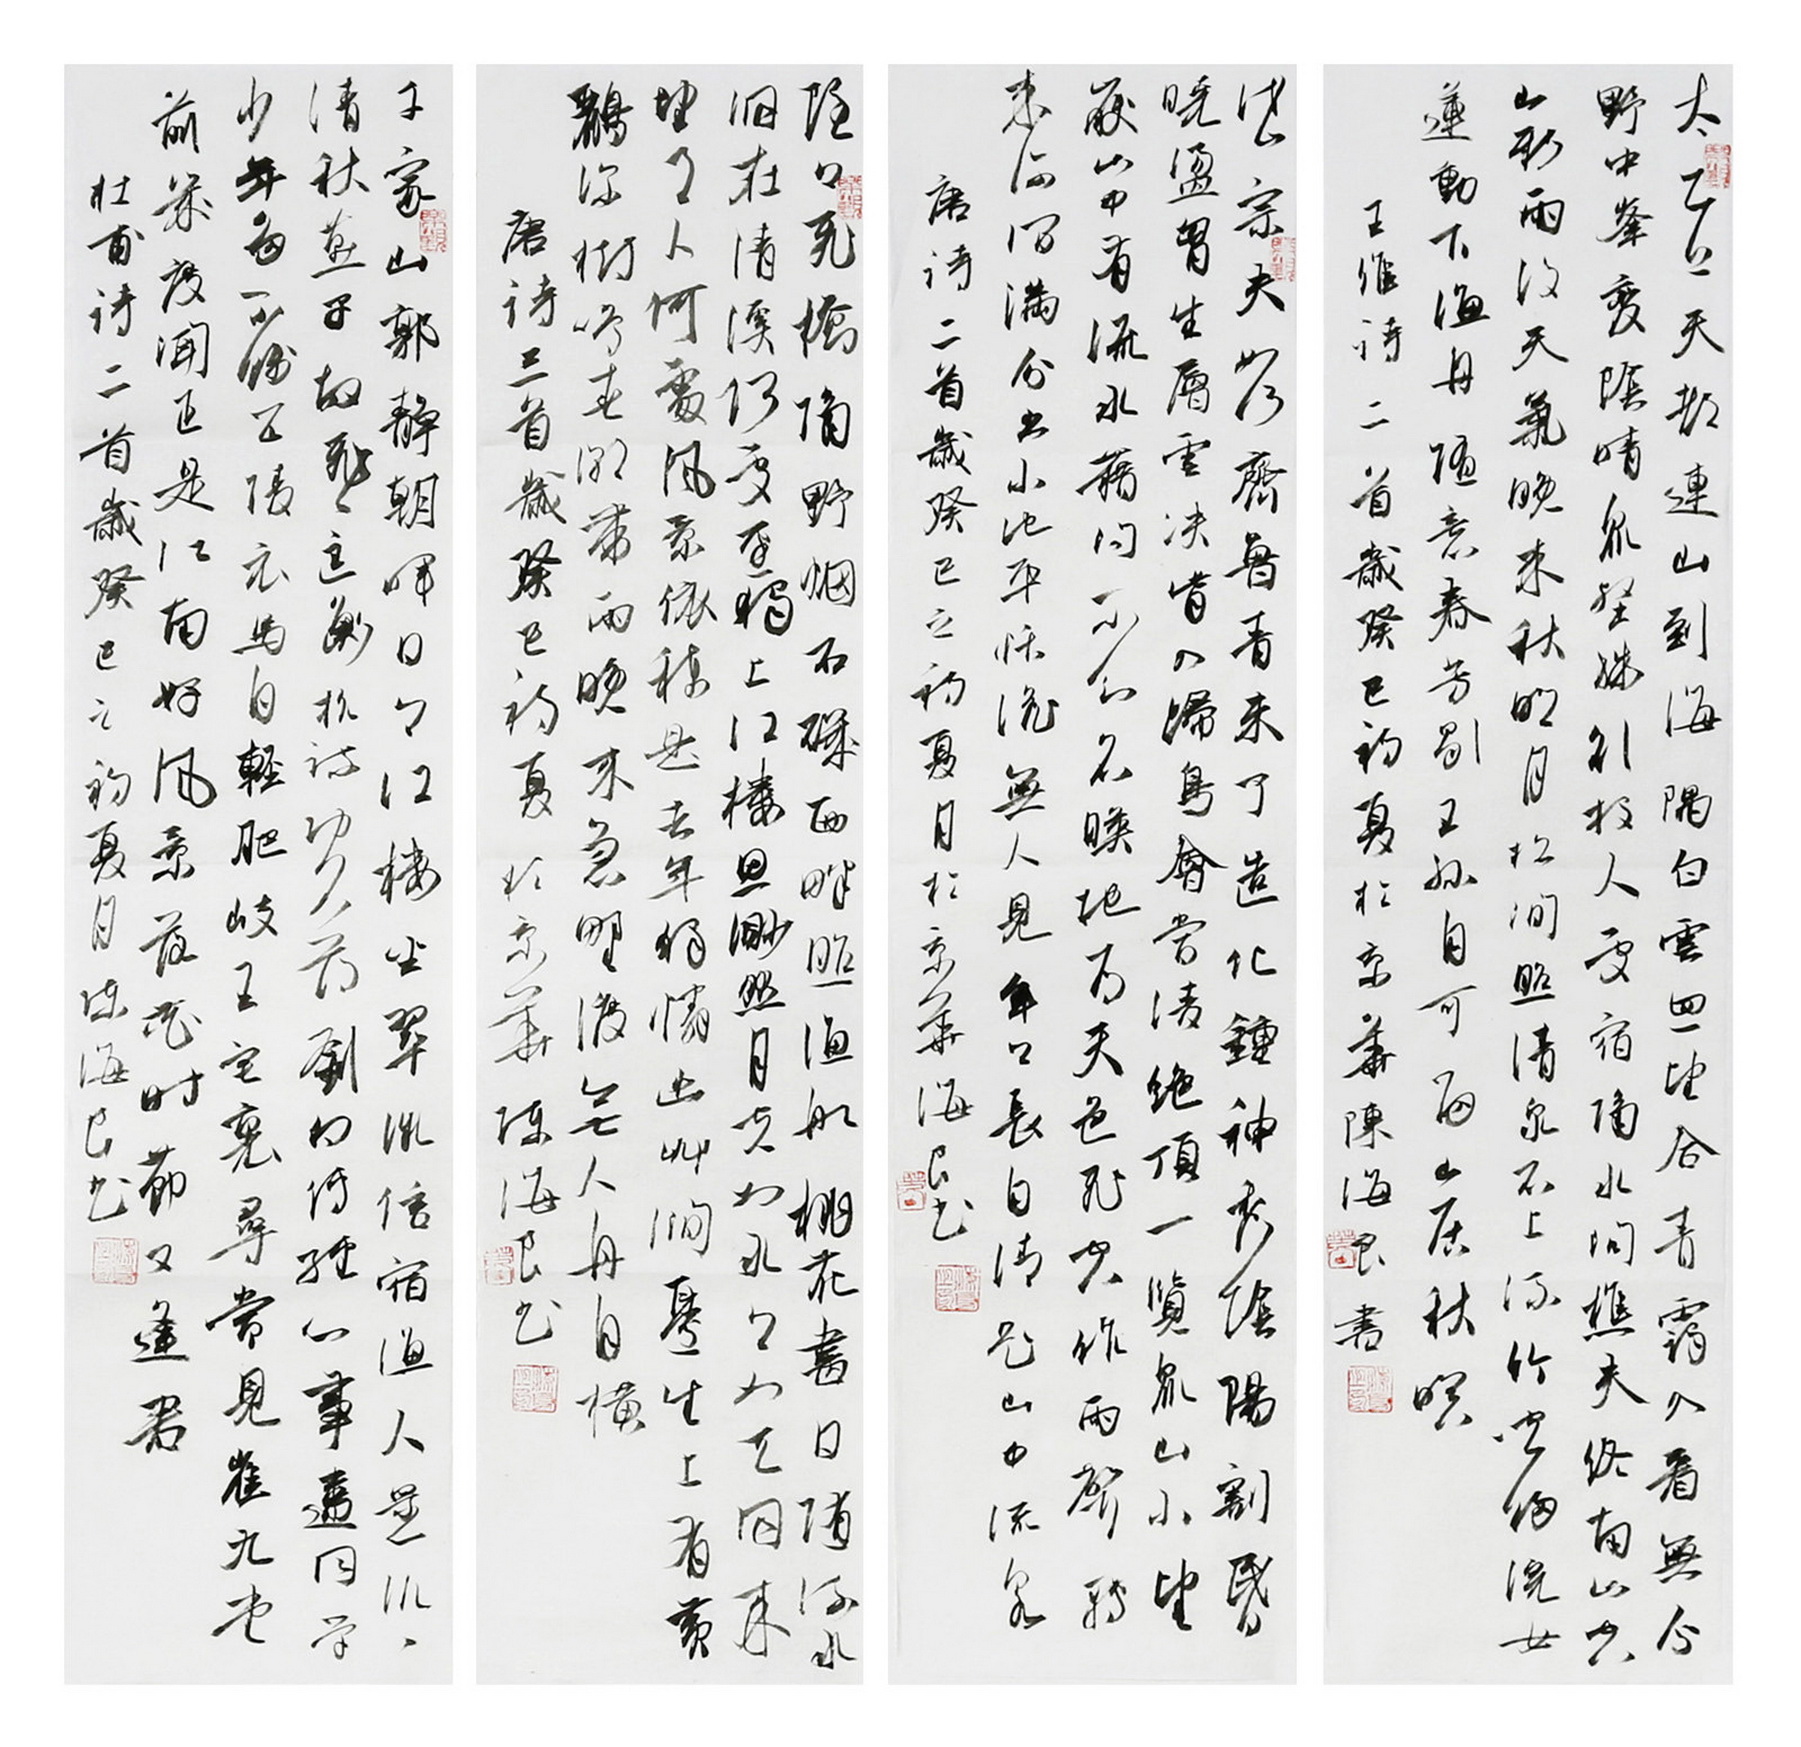 太乙近天都連山到海隅白雲回望合青靄入看無分
野中峯變陰晴眾壑殊欲投人處宿隔水問樵夫終南山空
山新雨後天氣晚來秋明月松間照清泉石上流竹喧歸浣女
蓮動下漁舟隨意春芳歇王孫自可留山居秋暝
王維詩二首歲癸巳初夏於京華陳海良書
岱宗夫如何齊魯青未了造化鍾神秀陰陽割昏
曉盪胷生層雲決眥入歸鳥會當凌絕頂一覽眾山小望
嶽山中有流水藉問不知名暎地為天色飛空作雨聲轉
來深澗滿分出小池平恬澹無人見年々長自清題山中流泉
唐詩二首歲癸巳之初夏月於京華海良書
隱々飛橋隔野烟石磯西畔問漁船桃花盡日隨流水
洞在清溪何處邊獨上江樓思渺然月光如水々如天同來
望月人何處風景依稀是去年獨憐幽草澗邊生上有黃
鸝深樹鳴春潮帶雨晚來急野渡無人舟自橫
唐詩三首歲癸巳初夏於京華陳海良書
千家山郭靜朝暉日々江樓坐翠微信宿漁人還汎々
清秋燕子故飛々匡衡抗疏功名薄劉向傳經心事違同学
少年多不賤五陵衣馬自輕肥岐王宅裏尋常見崔九堂
前幾度聞正是江南好風景落花时節又逢君
杜甫詩二首歲癸巳之初夏月陳海良書